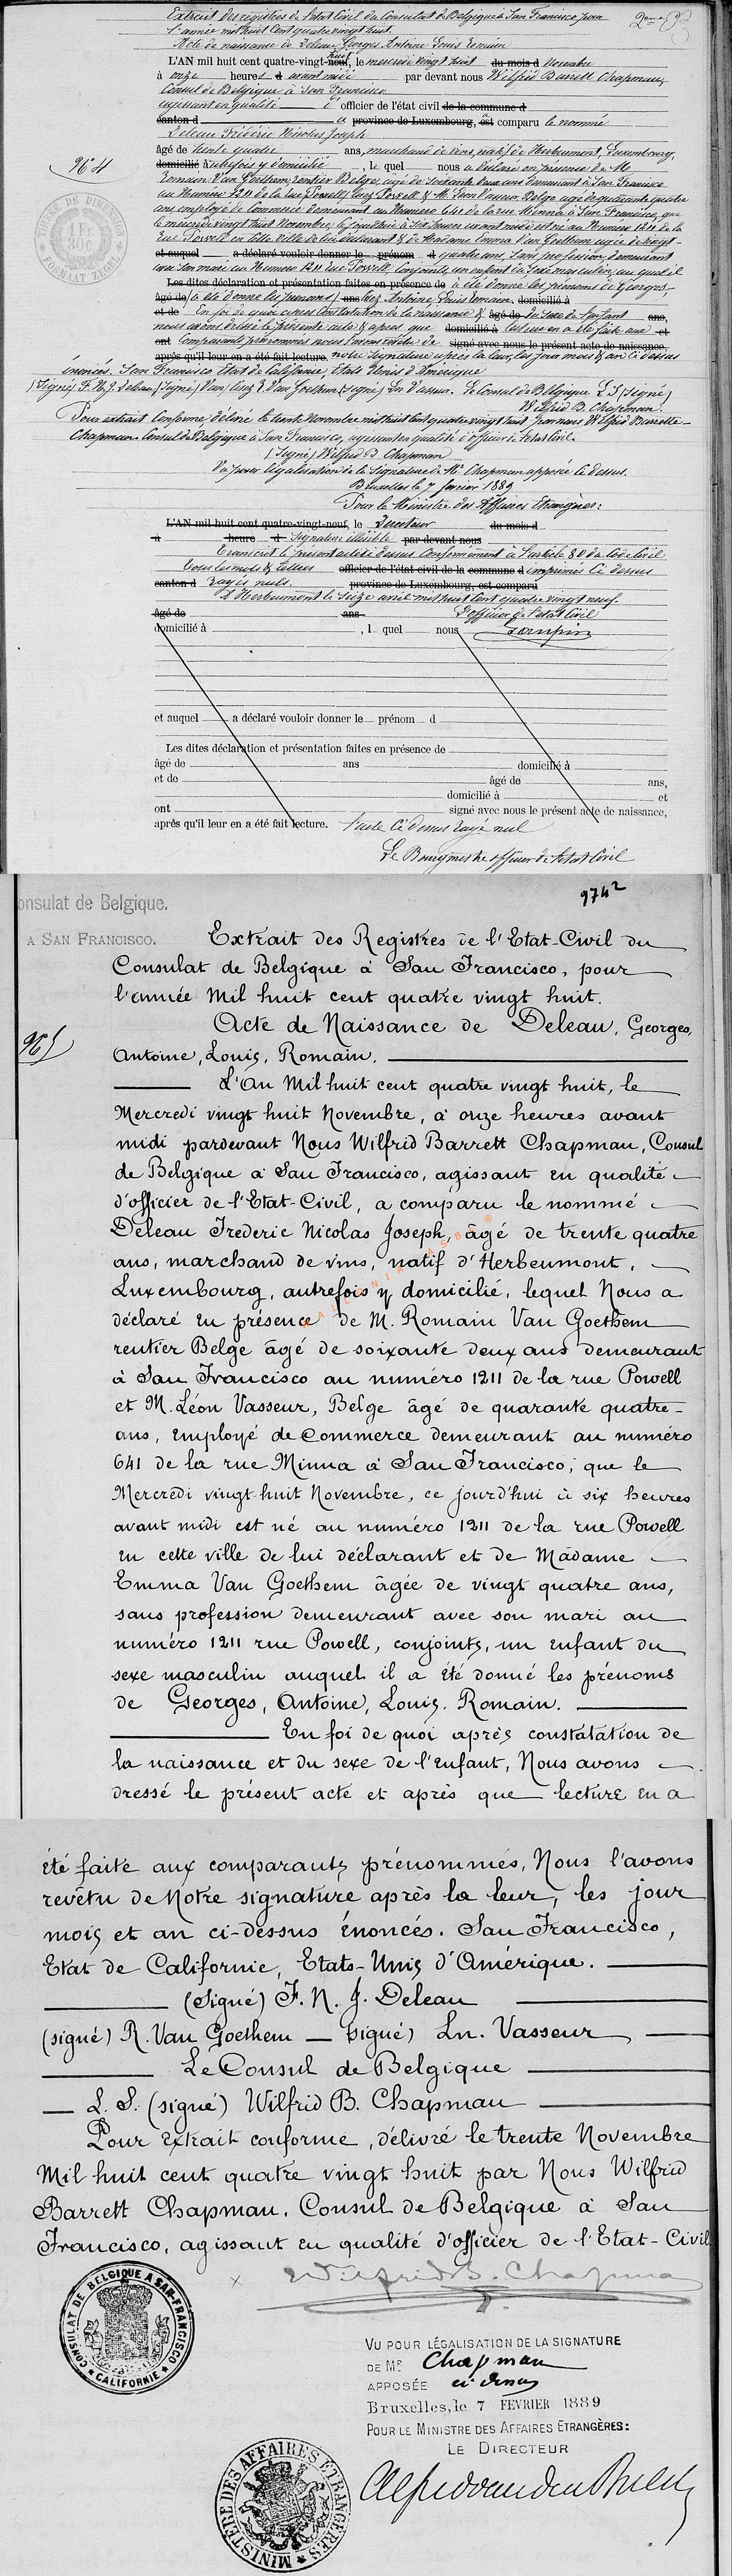 Extrait des registres de l'état Civil du Consulat de Belgique à San Francisco pour
l'année mil huit Cent quatre vingt huit. 2eme
Acte de naissance de Deleau Georges Antoine Louis Romain
L'AN mil huit cent quatre-vingt-neuf, huit le mercredi vingt huit du mois d Novembre
à onze heures d avant midi par devant nous Wilfrid Barrett Chapman,
Consul de Belgique à San Francisco
agissant en qualité d' officier de l'état civil de la commune d
canton d province de Luxembourg, est a comparu le nommé
Deleau Fréderic Nicolas Joseph
âgé de trente quatre ans, marchand de vins, natif de Herbeumont, Luxembourg,
N° 4
domicilié autrefois y domicilié , l e quel nous a déclaré en présence de M.
Romain Van Goethem, rentier Belge, agé de Soixante deux ans demeurant à San Francisco
au Numéro 1211 de la rue Powell
TIMBRE DE DIMENSION
1 Fr. 30c.
FORMAAT ZEGEL
ans, employé de Commerce demeurant au Numero 641 de la rue Minna à San Francisco, que
le mercredi vingt huit Novembre, ce jourd'hui à six heures avant midi est né au Numero 1211 de la
rue Powell en cette Ville de lui déclarant & de Madame Emma Van Goethem agée de vingt
et auquel a déclaré vouloir donner le prénom d quatre ans, Sans profession, demeurant
avec Son mari au Numero 1211 rue Powell, Conjoints, un enfant du Sexe masculin, auquel il
Les dites déclaration et présentation faites en présence de a été donné les prénoms de Georges,
âgé de ans Antoine, Louis Romain. domicilié à
et de En foi de quoi après Constatation de la naissance & âgé de du Sexe de l'enfant ans,
nous avons dressé le présent acte & après que domicilié à lecture en a été faite aux et
ont Comparants prénommés nous l'avons revêtu de signé avec nous le présent acte de naissance,
après qu'il leur en a été fait lecture. notre Signature après la leur, les jour mois & an Ci dessus
énoncés. San Francisco Etat de Californie, Etats Unis d'Amérique
(Signé) F. N. J. Deleau (Signé) R. Van Goethem (signé) Ln Vasseur. Le Consul de Belgique L. S. (Signé)
Wilfrid B. Chapman.
Pour extrait Conforme délivré le trente Novembre mil huit Cent quatre vingt huit par nous Wilfrid Barrett
Chapman Consul de Belgique à San Francisco, agissant en qualité d'officier de l'état Civil.
(Signé) Wilfrid B Chapman
Vu pour légalisation de la Signature de Mr. Chapman apposée Ci dessus.
Bruxelles le 7 février 1889
Pour le Ministre des Affaires Etrangères:
L'AN mil huit cent quatre-vingt-neuf, le Directeur du mois d
à heure d Signature illisible par devant nous
Transcrit le présent acte Ci dessus Conformément à l'article 80 du Code Civil
tous les mots & lettres officier de l'état civil de la commune d imprimés Ci dessus
canton d rayés nuls. province de Luxembourg, est comparu
A Herbeumont le Seize avril mil huit Cent quatre vingt neuf.
âgé de ans L'officier de l'état Civil
domicilié à , l quel nous
et auquel a déclaré vouloir donner le prénom d
Les dites déclaration et présentation faites en présence de
âgé de ans domicilié à
et de âgé de ans,
domicilié à et
ont signé avec nous le présent acte de naissance,
après qu'il leur en a été fait lecture. l'acte Ci dessus rayé nul
Le Bourgmestre officier de l'état Civil
974²
onsulat de Belgique.
A SAN FRANCISCO.
Extrait des Registres de l'Etat-Civil du
Consulat de Belgique à San Francisco, pour
l'année Mil huit cent quatre vingt huit.
Acte de Naissance de Deleau, Georges,
Antoine, Louis, Romain.
L'An Mil huit cent quatre vingt huit, le
Mercredi vingt huit Novembre, à onze heures avant
midi pardevant Nous Wilfrid Barrett Chapman, Consul
de Belgique à San Francisco, agissant en qualité
d'officier de l'Etat-Civil, a comparu le nommé
Deleau Frederic Nicolas Joseph, âgé de trente quatre
ans, marchand de vins, natif d'Herbeumont,
Luxembourg, autrefois y domicilié, lequel Nous a
déclaré en présence de M. Romain Van Goethem
rentier Belge âgé de soixante deux ans demeurant
à San Francisco au numéro 1211 de la rue Powell
et M. Léon Vasseur, Belge âgé de quarante quatre
ans, Employé de Commerce demeurant au numéro
641 de la rue Minna à San Francisco; que le
Mercredi vingt-huit Novembre, ce jourd'hui à six heures
avant midi est né au numéro 1211 de la rue Powell
en cette ville de lui déclarant et de Madame
Emma Van Goethem âgée de vingt quatre ans,
sans profession demeurant avec son mari au
numéro 1211 rue Powell, conjoints, un enfant du
sexe masculin auquel il a été donné les prénoms
de Georges, Antoine, Louis, Romain.
En foi de quoi après constatation de
la naissance et du sexe de l'enfant, Nous avons
dressé le présent acte et après que lecture en a
été faite aux comparants prénommés, Nous l'avons
revêtu de Notre signature après la leur, les jour
mois et an ci-dessus énoncés. San Francisco,
Etat de Californie, Etats-Unis d'Amérique.
(signé) F. N. J. Deleau
(signé) R. Van Goethem — signé) Ln. Vasseur
Le Consul de Belgique
L. S. (signé) Wilfrid B. Chapman
Pour Extrait conforme, délivré le trente Novembre
Mil huit cent quatre vingt huit par Nous Wilfrid
Barrett Chapman, Consul de Belgique à San
Francisco, agissant en qualité d'officier de l'Etat-Civil
Wilfrid B. Chapman
CONSULAT DE BELGIQUE A SAN-FRANCISCO
CALIFORNIE
VU POUR LÉGALISATION DE LA SIGNATURE
DE MR Chapman
APPOSÉE ci dessus
Bruxelles, le 7 FEVRIER 1889
POUR LE MINISTRE DES AFFAIRES ETRANGÈRES:
LE DIRECTEUR
MINISTÈRE DES AFFAIRES ETRANGÈRES